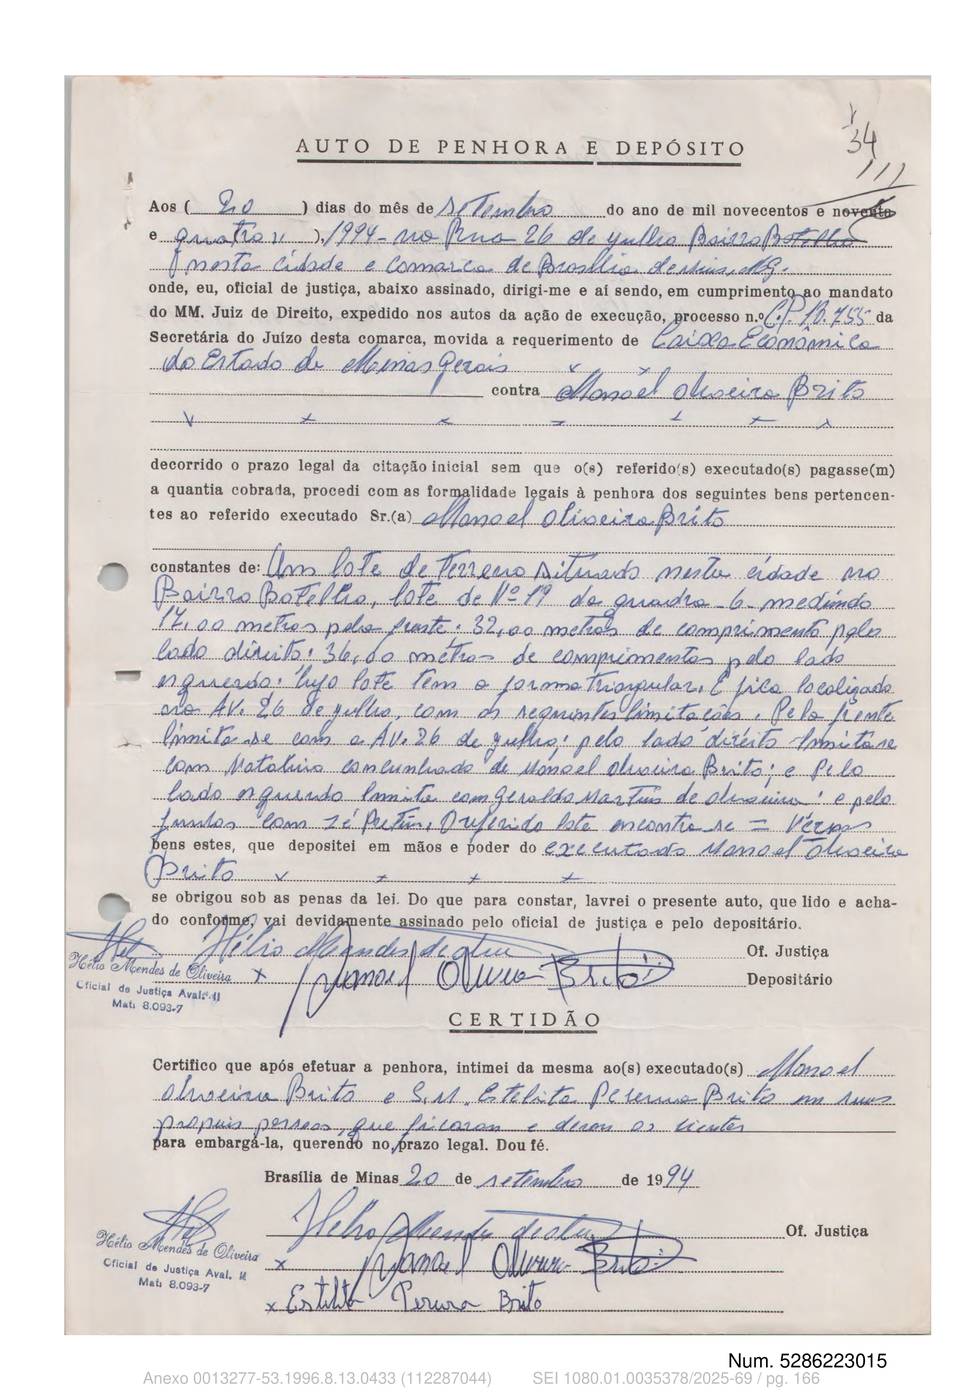 34
AUTO DE PENHORA E DEPÓSITO
Aos ( 20 ) dias do mês de setembro do ano de mil novecentos e noventa
e quatro ), 1994 - no Rua 26 de julho Bairro Botelho
nesta cidade e comarca de Brasília de Minas, MG.
onde, eu, oficial de justiça, abaixo assinado, dirigi-me e aí sendo, em cumprimento ao mandato
do MM. Juiz de Direito, expedido nos autos da ação de execução, processo n.º C.P. 10.755 da
Secretária do Juízo desta comarca, movida a requerimento de Caixa Econômica
do Estado de Minas Gerais
contra Manoel Oliveira Brito
decorrido o prazo legal da citação inicial sem que o(s) referido(s) executado(s) pagasse(m)
a quantia cobrada, procedi com as formalidade legais à penhora dos seguintes bens pertencen-
tes ao referido executado Sr.(a) Manoel Oliveira Brito
constantes de: Um lote de terreno situado nesta cidade no
Bairro Botelho, lote de Nº 19 da quadra -6- medindo
17,00 metros pela frente: 32,00 metros de comprimento pelo
lado direito: 36,00 metros de comprimentos pelo lado
esquerdo: cujo lote tem a forma triangular. E fica localizado
na AV. 26 de julho, com os seguintes limitações. Pela frente
limita-se com a AV. 26 de julho; pelo lado direito limita-se
com concunhado de Manoel Oliveira Brito; e pelo
lado esquerdo limita com Geraldo Martins de Oliveira: e pelo
fundos com Zé Pretin. O referido lote encontra-se =
bens estes, que depositei em mãos e poder do executado Manoel Oliveira
Brito
se obrigou sob as penas da lei. Do que para constar, lavrei o presente auto, que lido e acha-
do conforme, vai devidamente assinado pelo oficial de justiça e pelo depositário.
Hélio Mendes de Oliveira Of. Justiça
Hélio Mendes de Oliveira x Manoel Oliveira Brito Depositário
Oficial de Justiça Aval.
Mat: 8.093-7
CERTIDÃO
Certifico que após efetuar a penhora, intimei da mesma ao(s) executado(s) Manoel
Oliveira Brito e S.M. Estelita Pereira Brito em suas
proprias pessoas, que ficaram e deram os cientes
para embargá-la, querendo no prazo legal. Dou fé.
Brasília de Minas 20 de setembro de 1994
Of. Justiça
Hélio Mendes de Oliveira x Manoel Oliveira Brito
Oficial de Justiça Aval.
Mat: 8.093-7
x Estelita Pereira Brito
Num. 5286223015
Anexo 0013277-53.1996.8.13.0433 (112287044) SEI 1080.01.0035378/2025-69 / pg. 166